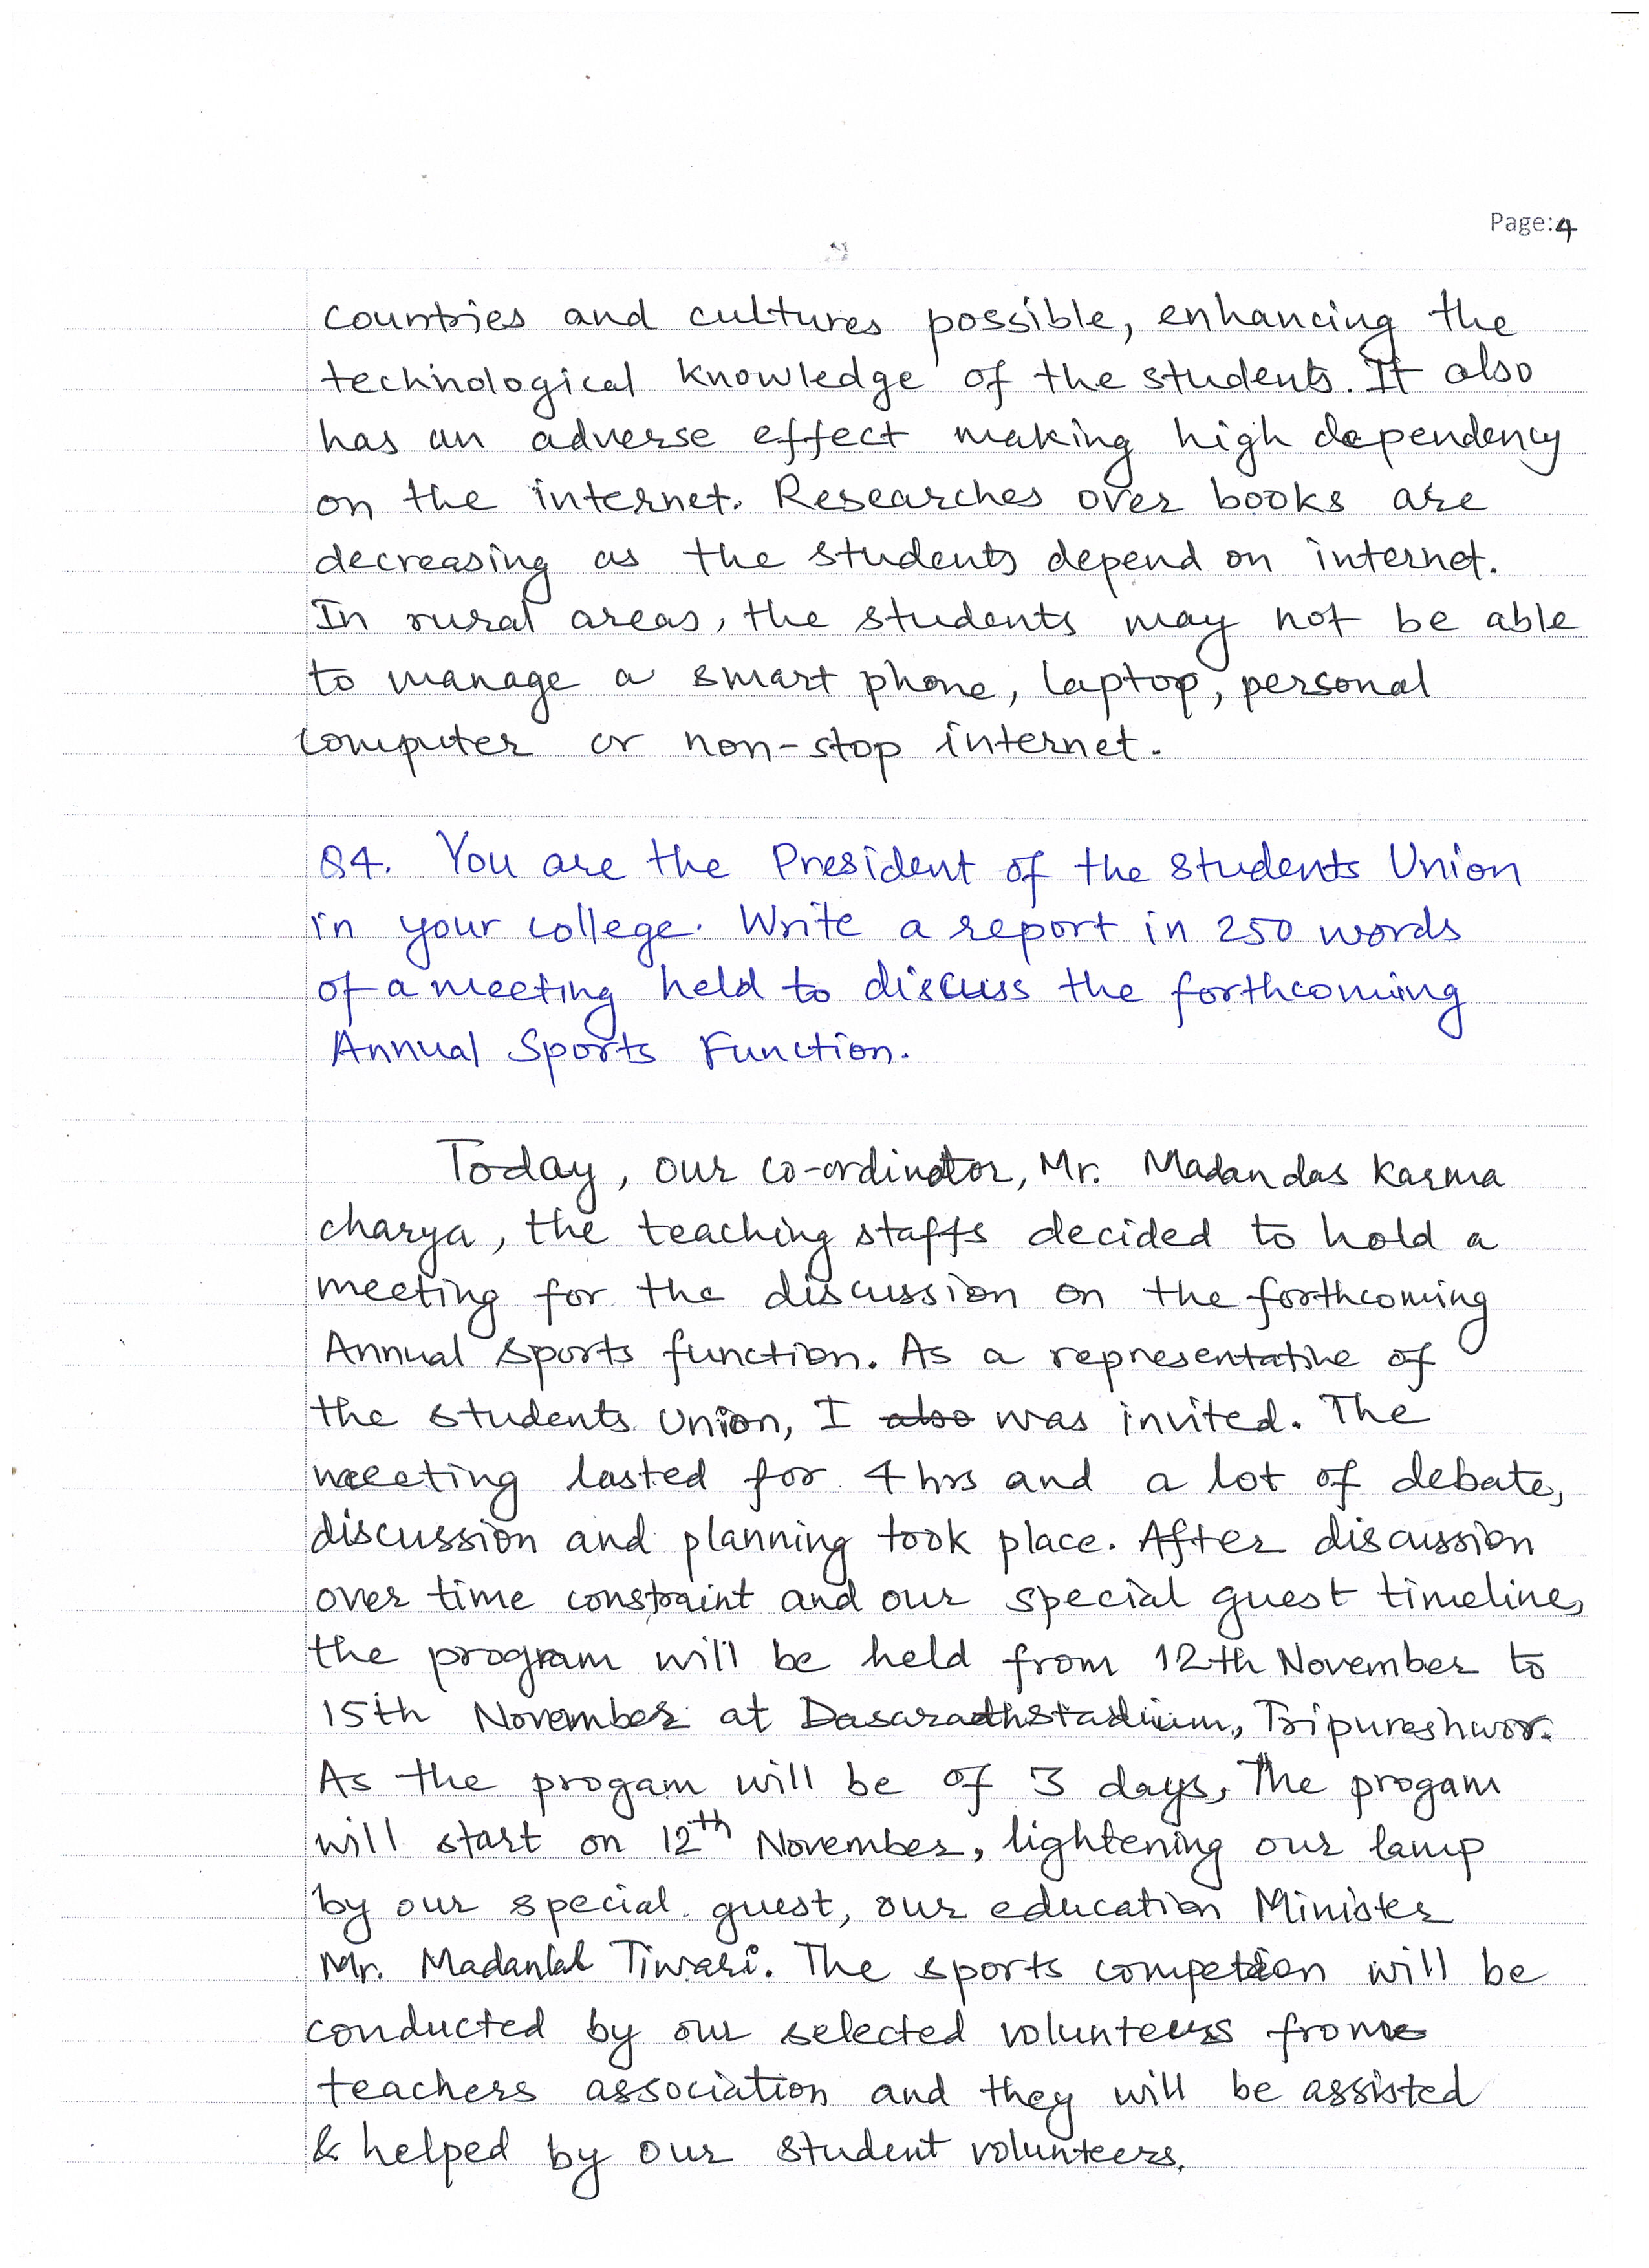 Page:4
countries and cultures possible, enhancing the
technological knowledge of the students. It also
has an adverse effect making high dependency
on the internet. Researches over books are
decreasing as the students depend on internet.
In rural areas, the students may not be able
to manage a smart phone, laptop, personal
computer or non-stop internet.
Q4. You are the President of the students Union
in your college. Write a report in 250 words
of a meeting held to discuss the forthcoming
Annual Sports Function.
Today, our co-ordinator, Mr. Madan das Karma
charya, the teaching staffs decided to hold a
meeting for the discussion on the forthcoming
Annual sports function. As a representative of
the students Union, I also was invited. The
meeting lasted for 4 hrs and a lot of debate,
discussion and planning took place. After discussion
over time constraint and our special guest timeline,
the program will be held from 12th November to
15th November at Dasarathstadium, Tripureshwor.
As the progam will be of 3 days, The progam
will start on 12th November, lightening our lamp
by our special guest, our education Minister
Mr. Madanlal Tiwari. The sports competion will be
conducted by our selected volunteers from
teachers association and they will be assisted
& helped by our student volunteers.